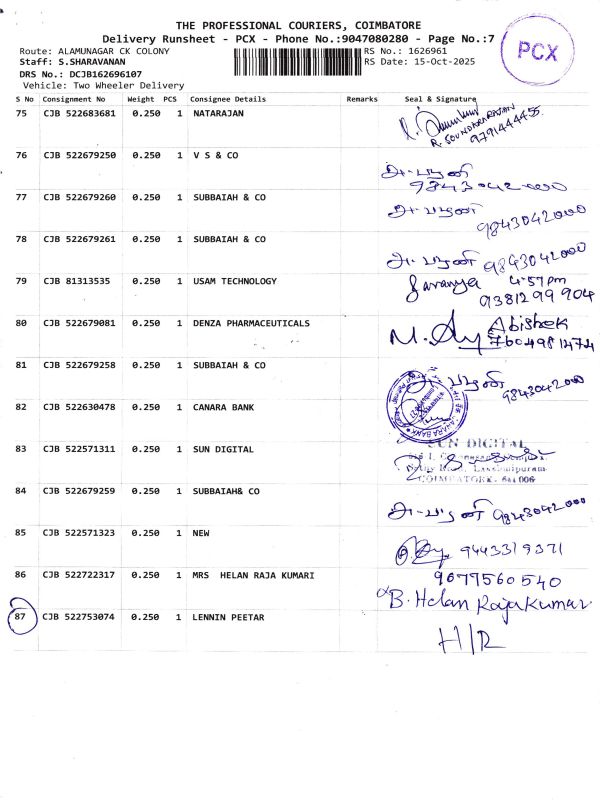 THE PROFESSIONAL COURIERS, COIMBATORE
Delivery Runsheet - PCX - Phone No.:9047080280 - Page No.:7
PCX
Route: ALAMUNAGAR CK COLONY RS No.: 1626961
Staff: S.SHARAVANAN RS Date: 15-Oct-2025
DRS No.: DCJB162696107
Vehicle: Two Wheeler Delivery
S No Consignment No Weight PCS Consignee Details Remarks Seal & Signature
75 CJB 522683681 0.250 1 NATARAJAN
R. SOUNDARARAJAN
9791444455
76 CJB 522679250 0.250 1 V S & CO
9843042000
77 CJB 522679260 0.250 1 SUBBAIAH & CO
9843042000
78 CJB 522679261 0.250 1 SUBBAIAH & CO
9843042000
79 CJB 81313535 0.250 1 USAM TECHNOLOGY Saranya 4:57pm
9381299904
80 CJB 522679081 0.250 1 DENZA PHARMACEUTICALS Abishek
7604981474
81 CJB 522679258 0.250 1 SUBBAIAH & CO
9843042000
82 CJB 522630478 0.250 1 CANARA BANK
CANARA BANK
83 CJB 522571311 0.250 1 SUN DIGITAL
SUN DIGITAL
Laxmipuram
COIMBATORE- 641 006
84 CJB 522679259 0.250 1 SUBBAIAH& CO
9843042000
85 CJB 522571323 0.250 1 NEW
9443319371
86 CJB 522722317 0.250 1 MRS HELAN RAJA KUMARI 9677560540
B. Helan Rajakumar
87 CJB 522753074 0.250 1 LENNIN PEETAR
H/R